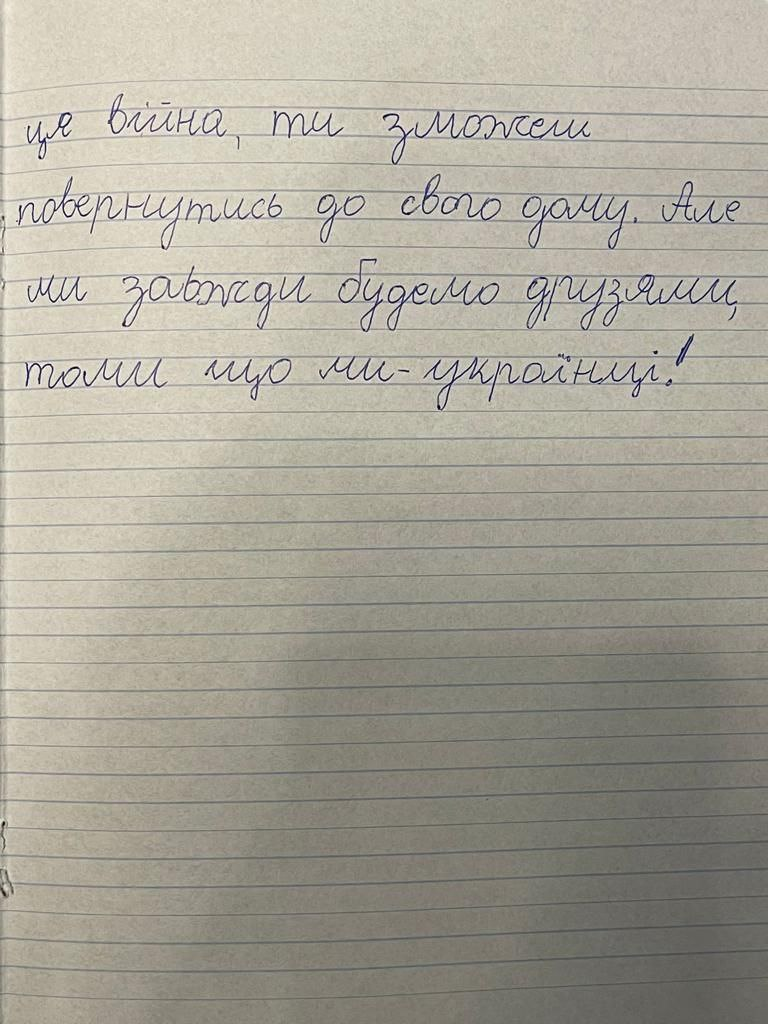 ця війна, ти зможеш
повернутись до свого дому. Але
ми завжди будемо друзями,
томи що ми-українці!